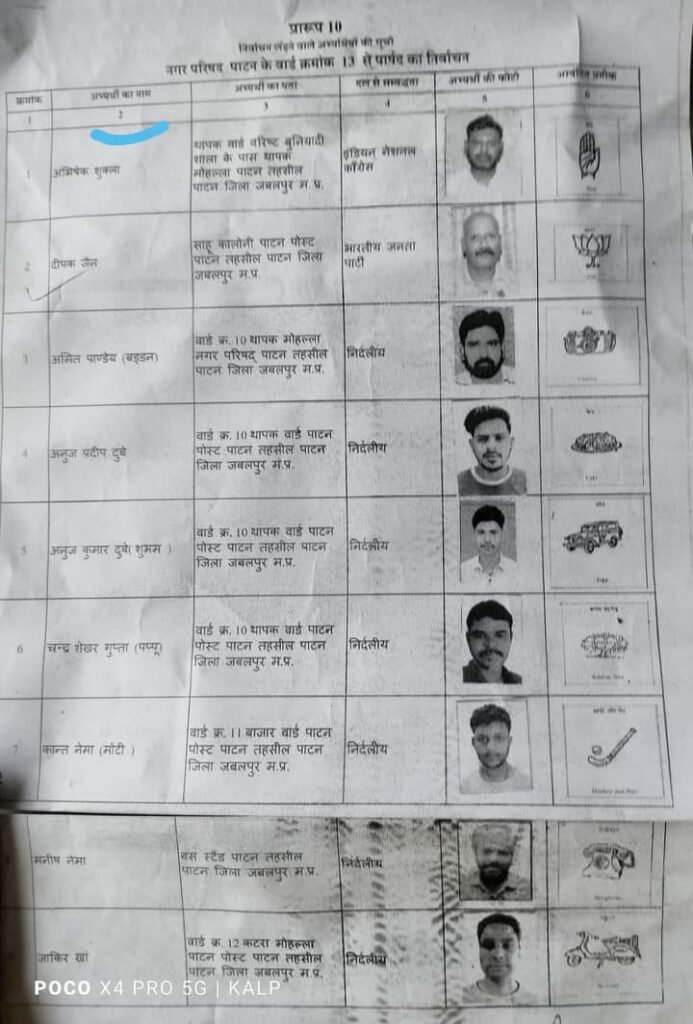 प्रारूप 10
निर्वाचन लड़ने वाले अभ्यर्थियों की सूची
नगर परिषद पाटन के वार्ड क्रमांक 13 से पार्षद का निर्वाचन
क्रमांक अभ्यर्थी का नाम अभ्यर्थी का पता दल से सम्बद्धता अभ्यर्थी की फोटो आवंटित प्रतीक
1 2 3 4 5 6
1 अभिषेक शुक्ला
थापक वार्ड वरिष्ट बुनियादी
शाला के पास थापक
मोहल्ला पाटन तहसील
पाटन जिला जबलपुर म. प्र.
इंडियन नेशनल
काँग्रेस
2 दीपक जैन
साहू कालोनी पाटन पोस्ट
पाटन तहसील पाटन जिला
जबलपुर म.प्र.
भारतीय जनता
पार्टी
3 अमित पाण्डेय (बड्डन)
वार्ड क्र. 10 थापक मोहल्ला
नगर परिषद् पाटन तहसील
पाटन जिला जबलपुर म.प्र.
निर्दलीय
4 अनुज प्रदीप दुबे
वार्ड क्र. 10 थापक वार्ड पाटन
पोस्ट पाटन तहसील पाटन
जिला जबलपुर म.प्र.
निर्दलीय
5 अनुज कुमार दुबे( शुभम )
वार्ड क्र. 10 थापक वार्ड पाटन
पोस्ट पाटन तहसील पाटन
जिला जबलपुर म.प्र.
निर्दलीय
6 चन्द्र शेखर गुप्ता (पप्पू)
वार्ड क्र. 10 थापक वार्ड पाटन
पोस्ट पाटन तहसील पाटन
जिला जबलपुर म.प्र.
निर्दलीय
7 कान्त नेमा (मोंटी )
वार्ड क्र. 11 बाजार वार्ड पाटन
पोस्ट पाटन तहसील पाटन
जिला जबलपुर म.प्र.
निर्दलीय
Hockey and Ball
मनीष नेमा
बस स्टैंड पाटन तहसील
पाटन जिला जबलपुर म.प्र.
निर्दलीय
जाकिर खां
वार्ड क्र. 12 कटरा मोहल्ला
पाटन पोस्ट पाटन तहसील
पाटन जिला जबलपुर म.प्र.
निर्दलीय
POCO X4 PRO 5G | KALP